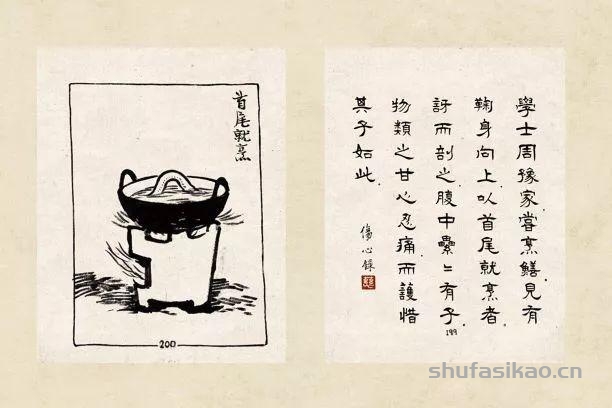 首尾就烹
200
學士周豫家嘗烹鱔見有
鞠身向上以首尾就烹者
訝而剖之腹中纍々有子
物類之甘心忍痛而護惜
其子如此
傷心錄
199
shufasikao.cn